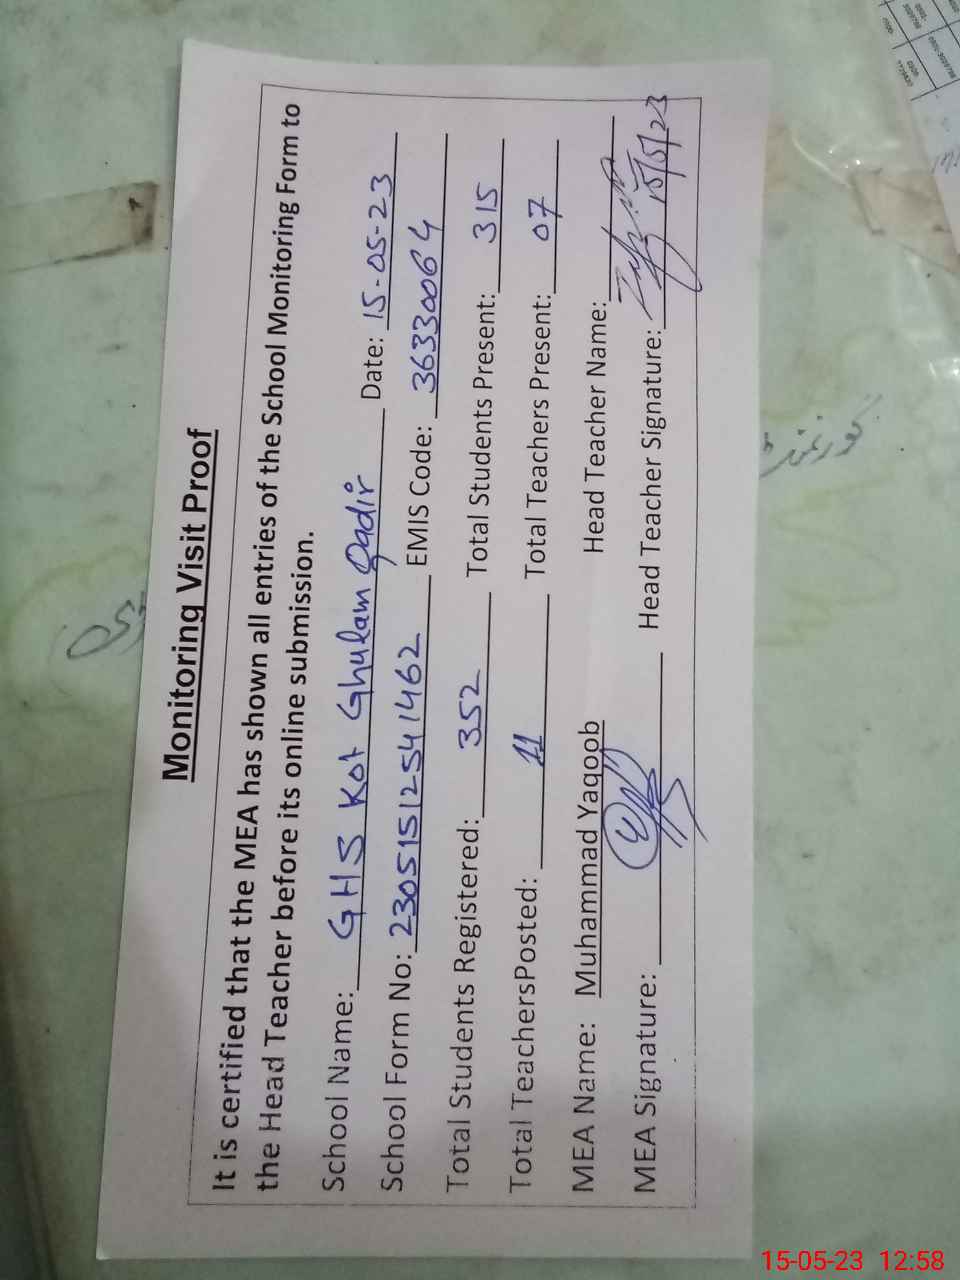 Monitoring Visit Proof
It is certified that the MEA has shown all entries of the School Monitoring Form to
the Head Teacher before its online submission.
School Name: GHS Kot Ghulam Qadir Date: 15-05-23
School Form No: 23051512541462 EMIS Code: 36330064
Total Students Registered: 352 Total Students Present: 315
Total TeachersPosted: 11 Total Teachers Present: 07
MEA Name: Muhammad Yaqoob Head Teacher Name:
MEA Signature: Head Teacher Signature: 15/5/23
15-05-23 12:58